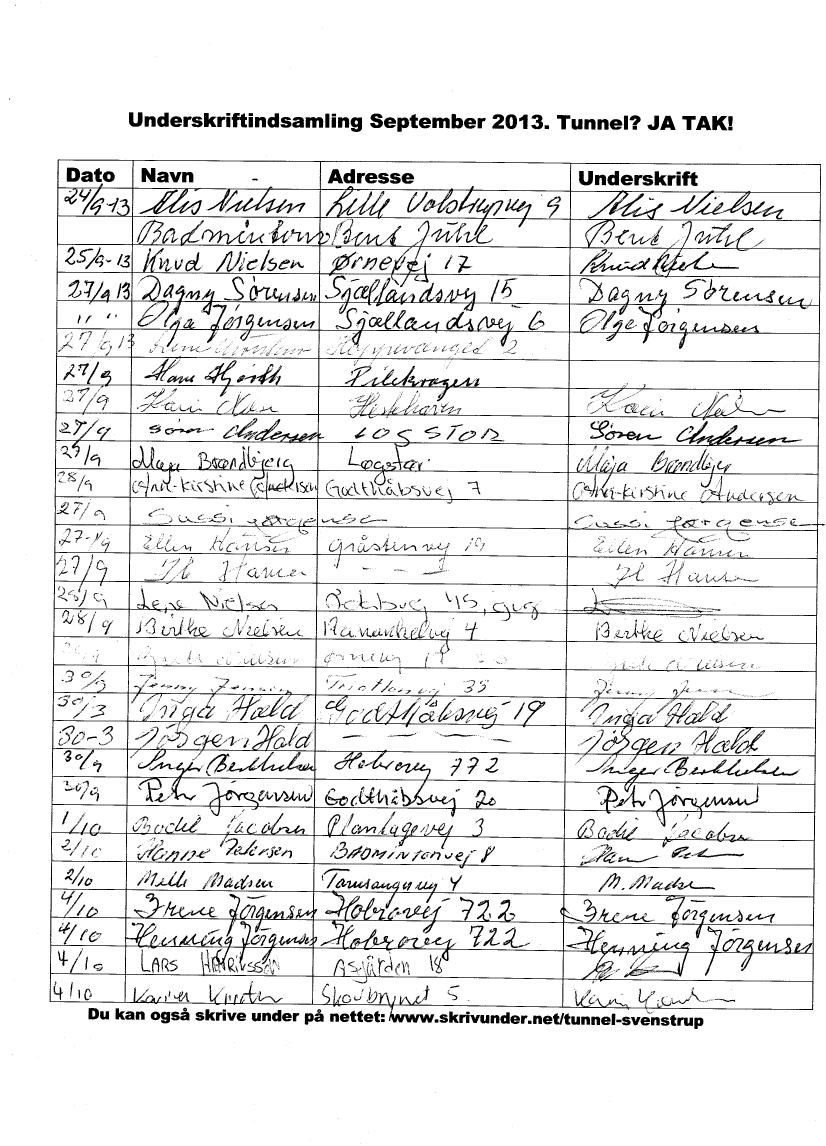 Underskriftindsamling September 2013. Tunnel? JA TAK!
Dato Navn - Adresse Underskrift
24/9-13 Alis Nielsen Lille Volstrupvej 9 Alis Nielsen
Bent Juhl Bent Juhl
25/9-13 Knud Nielsen Ørnevej 17
27/9 13 Dagny Sørensen Sjællandsvej 15 Dagny Sørensen
" " Olga Jørgensen Sjællandsvej 6 Olga Jørgensen
27/9 13 2
27/9 Hans Hjorth
27/9
27/9 Søren Andersen LOGSTOR Søren Andersen
27/9 Maja Brøndbjerg Løgstør
28/9 Godthåbsvej 7
27/9 Sussi Jørgensen Sussi Jørgensen
27-9 Ellen Hansen Gråstenvej 19 Ellen Hansen
27/9 Hansen - - - Hansen
28/9 Lene Nielsen 45, gug
28/9 Birthe Nielsen 4 Birthe Nielsen
30/9 Jenny Jensen 35
30/3 Inga Hald Godthåbsvej 19 Inga Hald
30-3 Jørgen Hald - - - Jørgen Hald
30/9 Inger Berthelsen Hobrovej 772 Inger Berthelsen
30/9 Petr Jørgensen Godthåbsvej 20 Petr Jørgensen
1/10 Bodil Jacobsen Plantagevej 3 Bodil Jacobsen
2/10 Hanne Petersen BADMINTONvej 8
2/10 Mille Madsen 4 M. Madsen
4/10 Irene Jørgensen Hobrovej 722 Irene Jørgensen
4/10 Henning Jørgensen Hobrovej 722 Henning Jørgensen
4/10 LARS Asgården 18
4/10 Skovbrynet 5.
Du kan også skrive under på nettet: www.skrivunder.net/tunnel-svenstrup